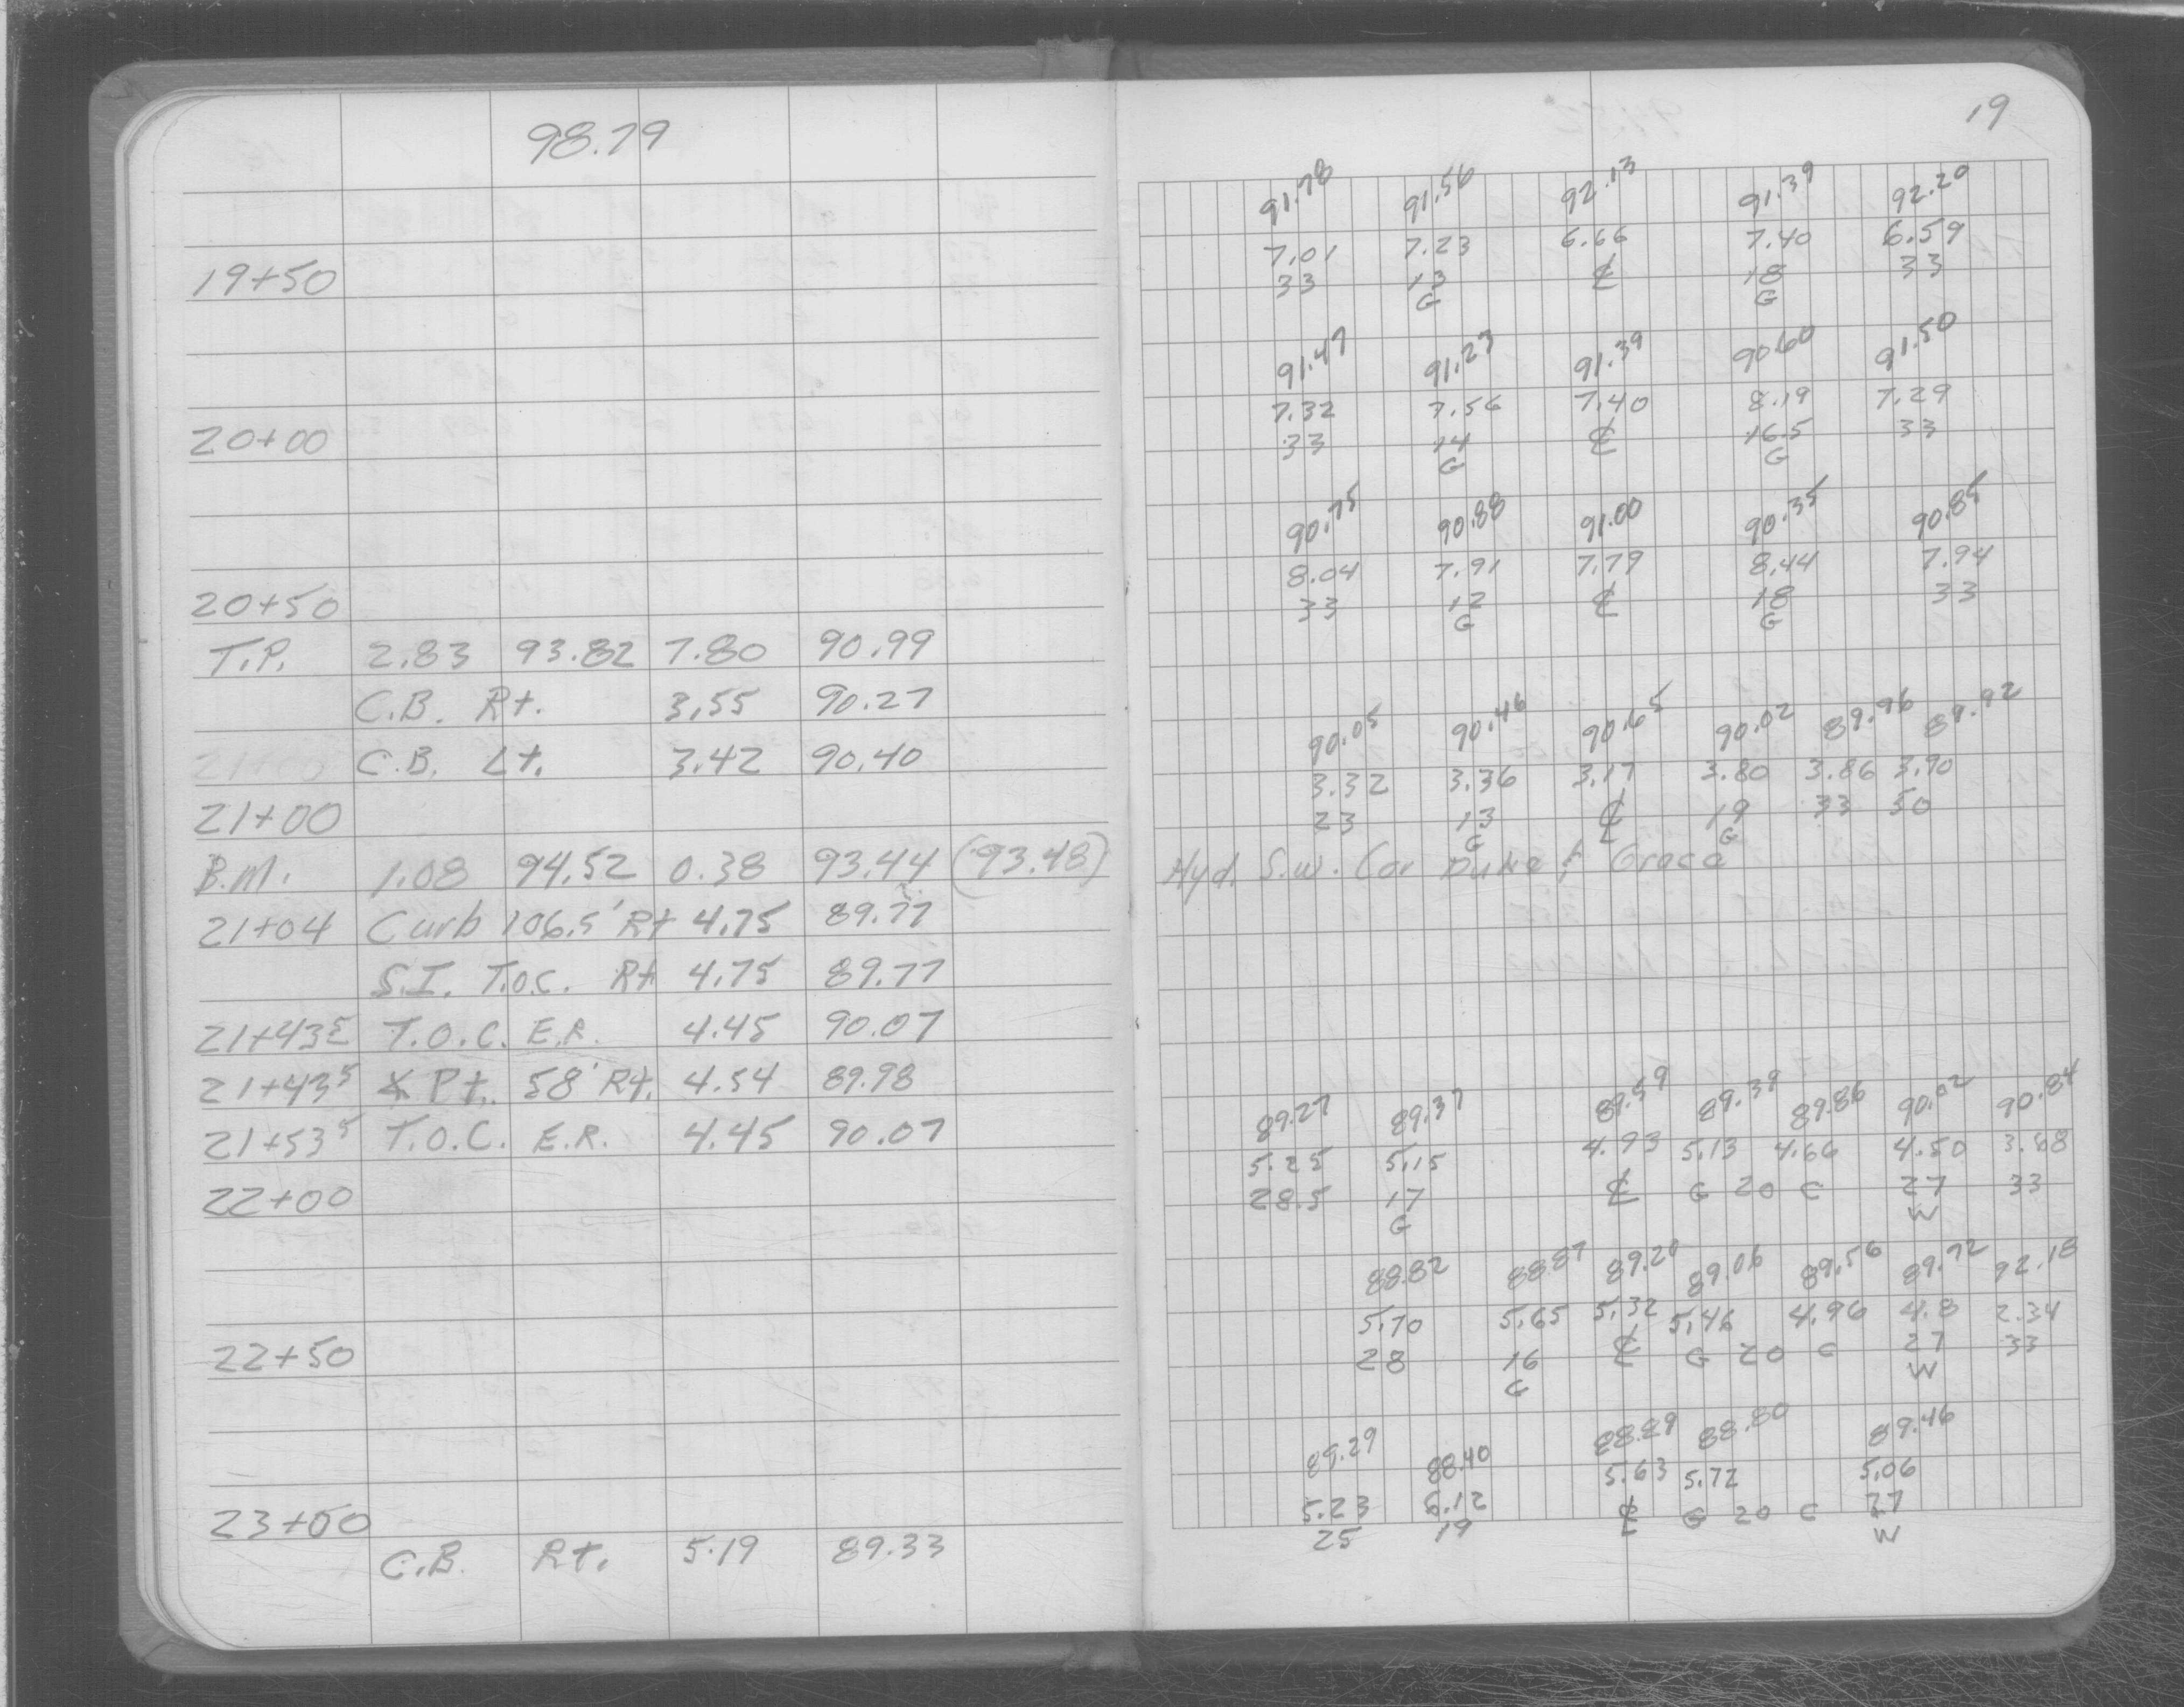 98.79
19+50
20+00
20+50
T.P. 2.83 93.82 7.80 90.99
C.B. Rt. 3.55 90.27
21+00 C.B. Lt. 3.42 90.40
21+00
B.M. 1.08 94.52 0.38 93.44 (93.48)
21+04 Curb 106.5' Rt 4.75 89.77
S.I. T.O.C. Rt 4.75 89.77
21+43⁵ T.O.C. E.R. 4.45 90.07
21+43⁵ ∡ Pt. 58' Rt. 4.54 89.98
21+53⁵ T.O.C. E.R. 4.45 90.07
22+00
22+50
23+00
C.B. Rt. 5.19 89.33
19
91.78 91.56 92.13 91.39 92.20
7.01 7.23 6.66 7.40 6.59
33 13 ℄ 18 33
G G
91.47 91.23 91.39 90.60 91.50
7.32 7.56 7.40 8.19 7.29
33 14 ℄ 16.5 33
G G
90.75 90.88 91.00 90.35 90.85
8.04 7.91 7.79 8.44 7.94
33 12 ℄ 18 33
G G
90.05 90.46 90.65 90.02 89.96 89.92
3.32 3.36 3.17 3.80 3.86 3.90
23 13 ℄ 19 33 50
G G
Hyd. S.W. Cor Duke & Grace
89.27 89.37 89.59 89.39 89.86 90.02 90.84
5.25 5.15 4.93 5.13 4.66 4.50 3.68
28.5 17 ℄ G 20 C 27 33
G W
88.82 88.87 89.20 89.06 89.56 89.72 92.18
5.70 5.65 5.32 5.46 4.96 4.8 2.34
28 16 ℄ G 20 C 27 33
G W
89.29 88.40 88.89 88.80 89.46
5.23 6.12 5.63 5.72 5.06
25 19 ℄ G 20 C 27
W